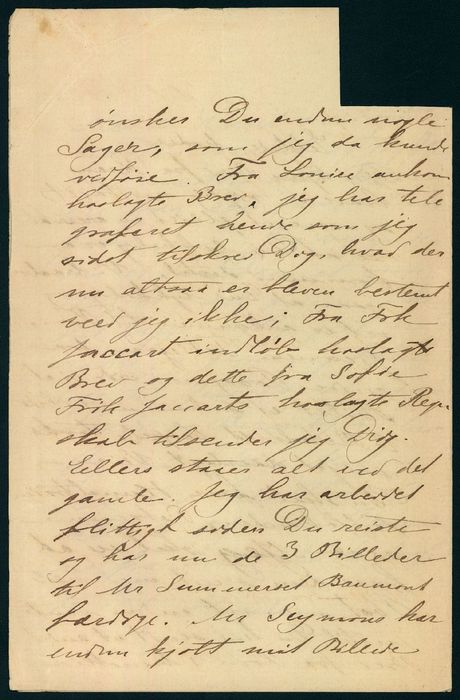 ønskes Du endnu nogle
Sager, som jeg da kunde
vedføie. Fra Louise ankom
hoslagte Brev, jeg har tele
graferet hende som jeg
sidst tilskrev Dig, hvad der
nu altsaa er bleven bestemt
veed jeg ikke; Fra Frk
Jaccart indløb hoslagte
Brev og dette fra Sofie
Frk Jaccarts hoslagte Regn-
skab tilsender jeg Dig.
Ellers staaer alt ved det
gamle. Jeg har arbeidet
flittigt siden Du reiste
og har nu de 3 Billeder
til Mr Summerset Baumont
færdige. Mr Seymons har
endnu kjøbt mit Billede